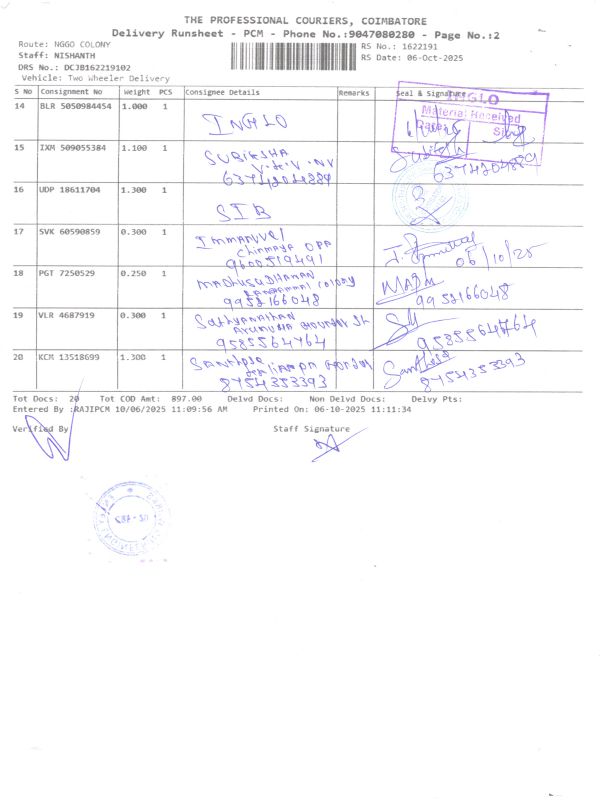 THE PROFESSIONAL COURIERS, COIMBATORE
Delivery Runsheet - PCM - Phone No.:9047080280 - Page No.:2
Route: NGGO COLONY
RS No.: 1622191
Staff: NISHANTH
RS Date: 06-Oct-2025
DRS No.: DCJB162219102
Vehicle: Two Wheeler Delivery
S No Consignment No Weight PCS Consignee Details Remarks Seal & Signature
14 BLR 5050984454 1.000 1
INGLO
INGLO
Material Received
15 IXM 509055384 1.100 1
SUBIKSHA
6374204889
16 UDP 18611704 1.300 1
SIB
17 SVK 60590859 0.300 1
Immanuvel
Chinmaya
9600519491
06/10/25
18 PGT 7250529 0.250 1
MADHUSUDHANAN
colony
9952166048
9952166048
19 VLR 4687919 0.300 1
Sathyanathan
9585564764
9585564764
20 KCM 13518699 1.300 1
Santhose
8754353393
8754353393
Tot Docs: 20 Tot COD Amt: 897.00 Delvd Docs: Non Delvd Docs: Delvy Pts:
Entered By :RAJIPCM 10/06/2025 11:09:56 AM Printed On: 06-10-2025 11:11:34
Verified By Staff Signature